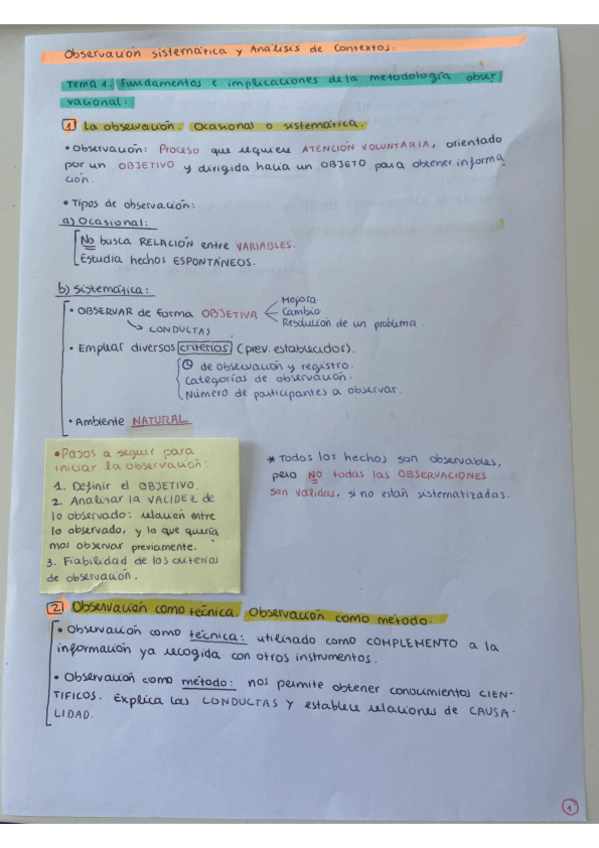 Observación sistemática y Análisis de Contextos.
Tema 1. Fundamentos e implicaciones de la metodología obser
vacional:
1 La observación. Ocasional o sistemática.
• Observación: Proceso que requiere ATENCIÓN VOLUNTARIA, orientado
por un OBJETIVO y dirigida hacia un OBJETO para obtener informa
ción.
• Tipos de observación:
a) Ocasional:
No busca RELACIÓN entre VARIABLES.
Estudia hechos ESPONTÁNEOS.
b) Sistemática:
• OBSERVAR de forma OBJETIVA
Mejora
Cambio
Resolución de un problema.
CONDUCTAS
• Emplear diversos criterios (prev. establecidos).
de observación y registro.
Categorías de observación.
Número de participantes a observar.
• Ambiente NATURAL
• Pasos a seguir para
iniciar la observación:
1. Definir el OBJETIVO.
2. Analizar la VALIDEZ de
lo observado: relación entre
lo observado, y lo que quería
mos observar previamente.
3. Fiabilidad de los criterios
de observación.
* Todos los hechos son observables,
pero NO todas las OBSERVACIONES
son válidas, si no están sistematizadas.
2 Observación como técnica. Observación como método.
• Observación como técnica: utilizado como COMPLEMENTO a la
información ya recogida con otros instrumentos.
• Observación como método: nos permite obtener conocimientos CIEN-
TÍFICOS. Explica las CONDUCTAS y establece relaciones de CAUSA-
LIDAD.
1